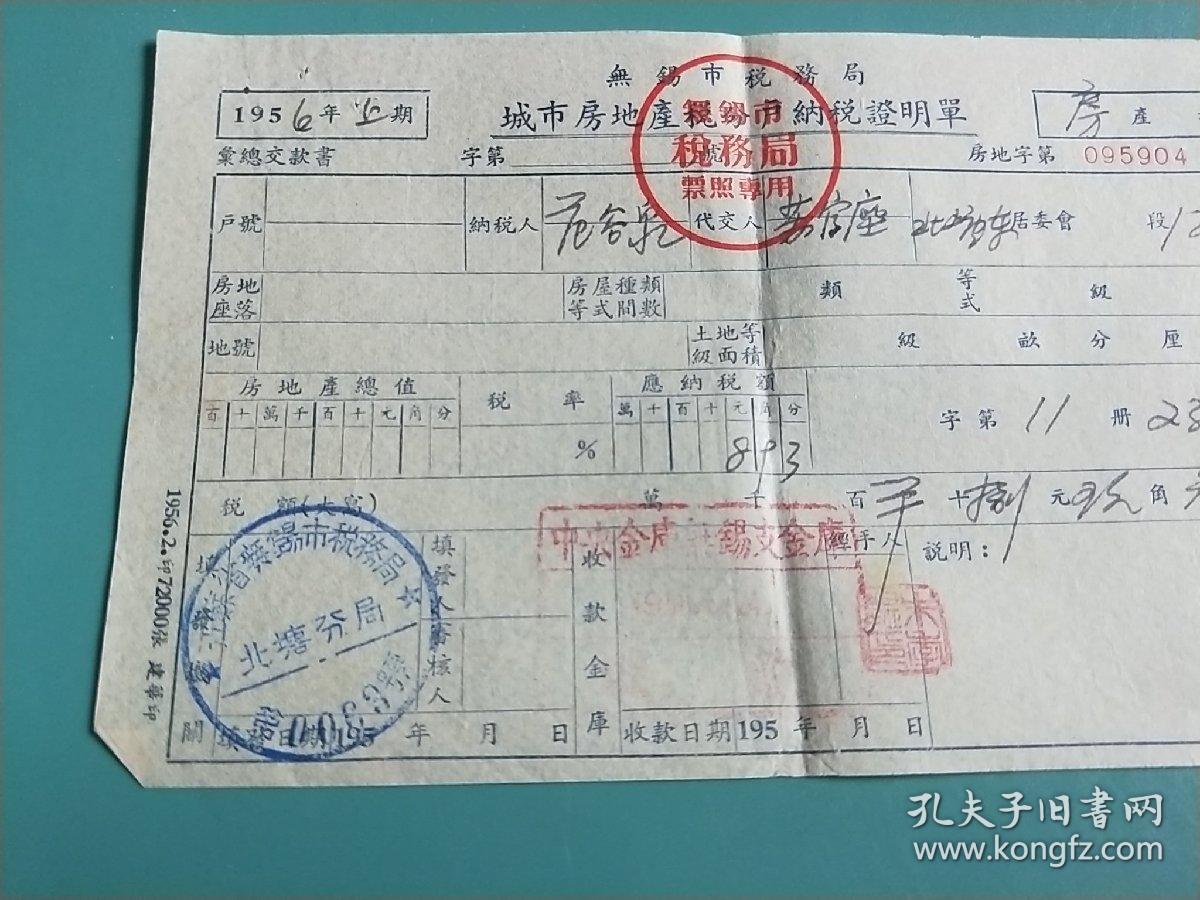 無錫市税務局
1956年上期
城市房地產税分户納税證明單
房產
彙總交款書 字第 號
房地字第 095904
無錫市
税務局
票照專用
戶號 納税人 范谷泉 代交人 居委會 段
房地座落 房屋種類等式間數 類 等式 級
地號 土地等級面積 級 畝 分 厘
房地產總值 税率 應納税額
百十萬千百十元角分 萬千百十元角分
% 893 字第11册23
税額(大寫) 萬 千 百 十捌元玖角
中央金庫無錫支金庫
江蘇省無錫市税務局
北塘分局
填發人 審核人 收款金庫 經手人 説明:
關 填發日期195 年 月 日 收款日期195 年 月 日
1956.2.印72000張 建華印
孔夫子旧书网
www.kongfz.com